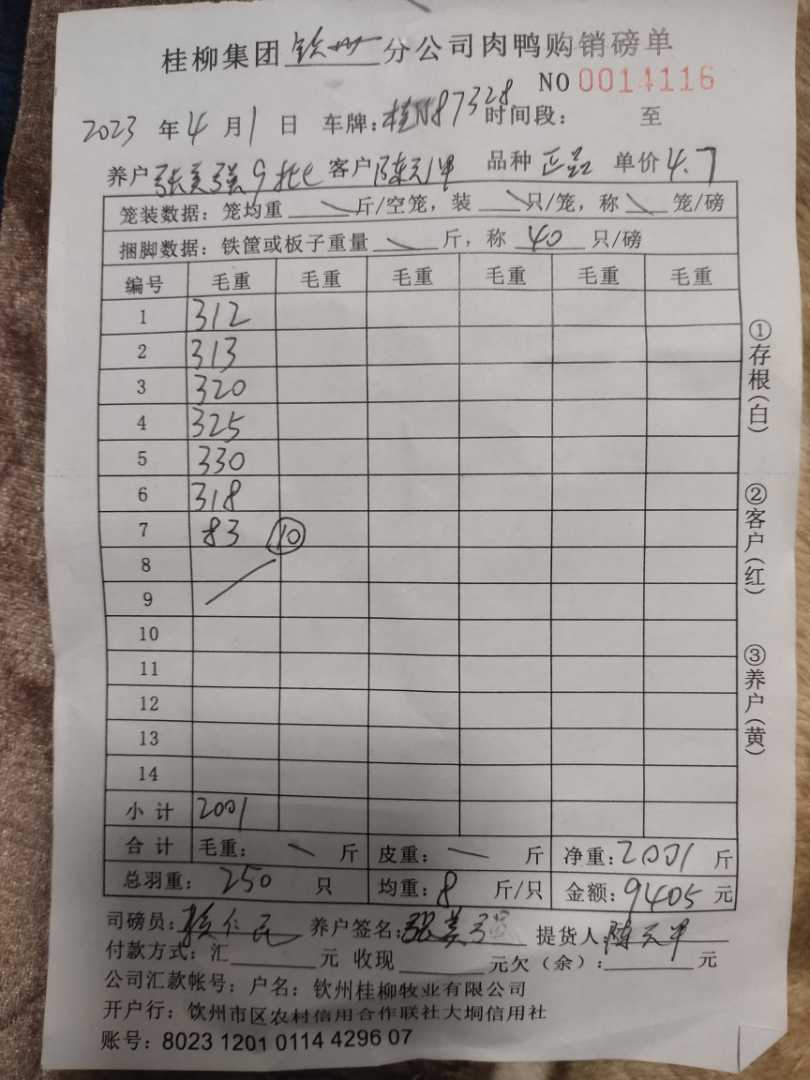 桂柳集团钦州分公司肉鸭购销磅单
NO 0014116
2023年4月1日 车牌:桂N87328 时间段: 至
养户张美强9批 客户陈天甲 品种 正品 单价4.7
笼装数据:笼均重 斤/空笼,装 只/笼,称 笼/磅
捆脚数据:铁筐或板子重量 斤,称 40 只/磅
编号 毛重 毛重 毛重 毛重 毛重 毛重
1 312
2 313
3 320
4 325
5 330
6 318
7 83 10
8
9
10
11
12
13
14
小计 2001
合计 毛重: 斤 皮重: 斤 净重:2001斤
总羽重:250 只 均重:8 斤/只 金额:9405元
司磅员: 养户签名:张美强 提货人:陈天甲
付款方式:汇 元 收现 元欠(余): 元
公司汇款帐号:户名:钦州桂柳牧业有限公司
开户行:钦州市区农村信用合作联社大垌信用社
账号:8023 1201 0114 4296 07
①存根(白)
②客户(红)
③养户(黄)